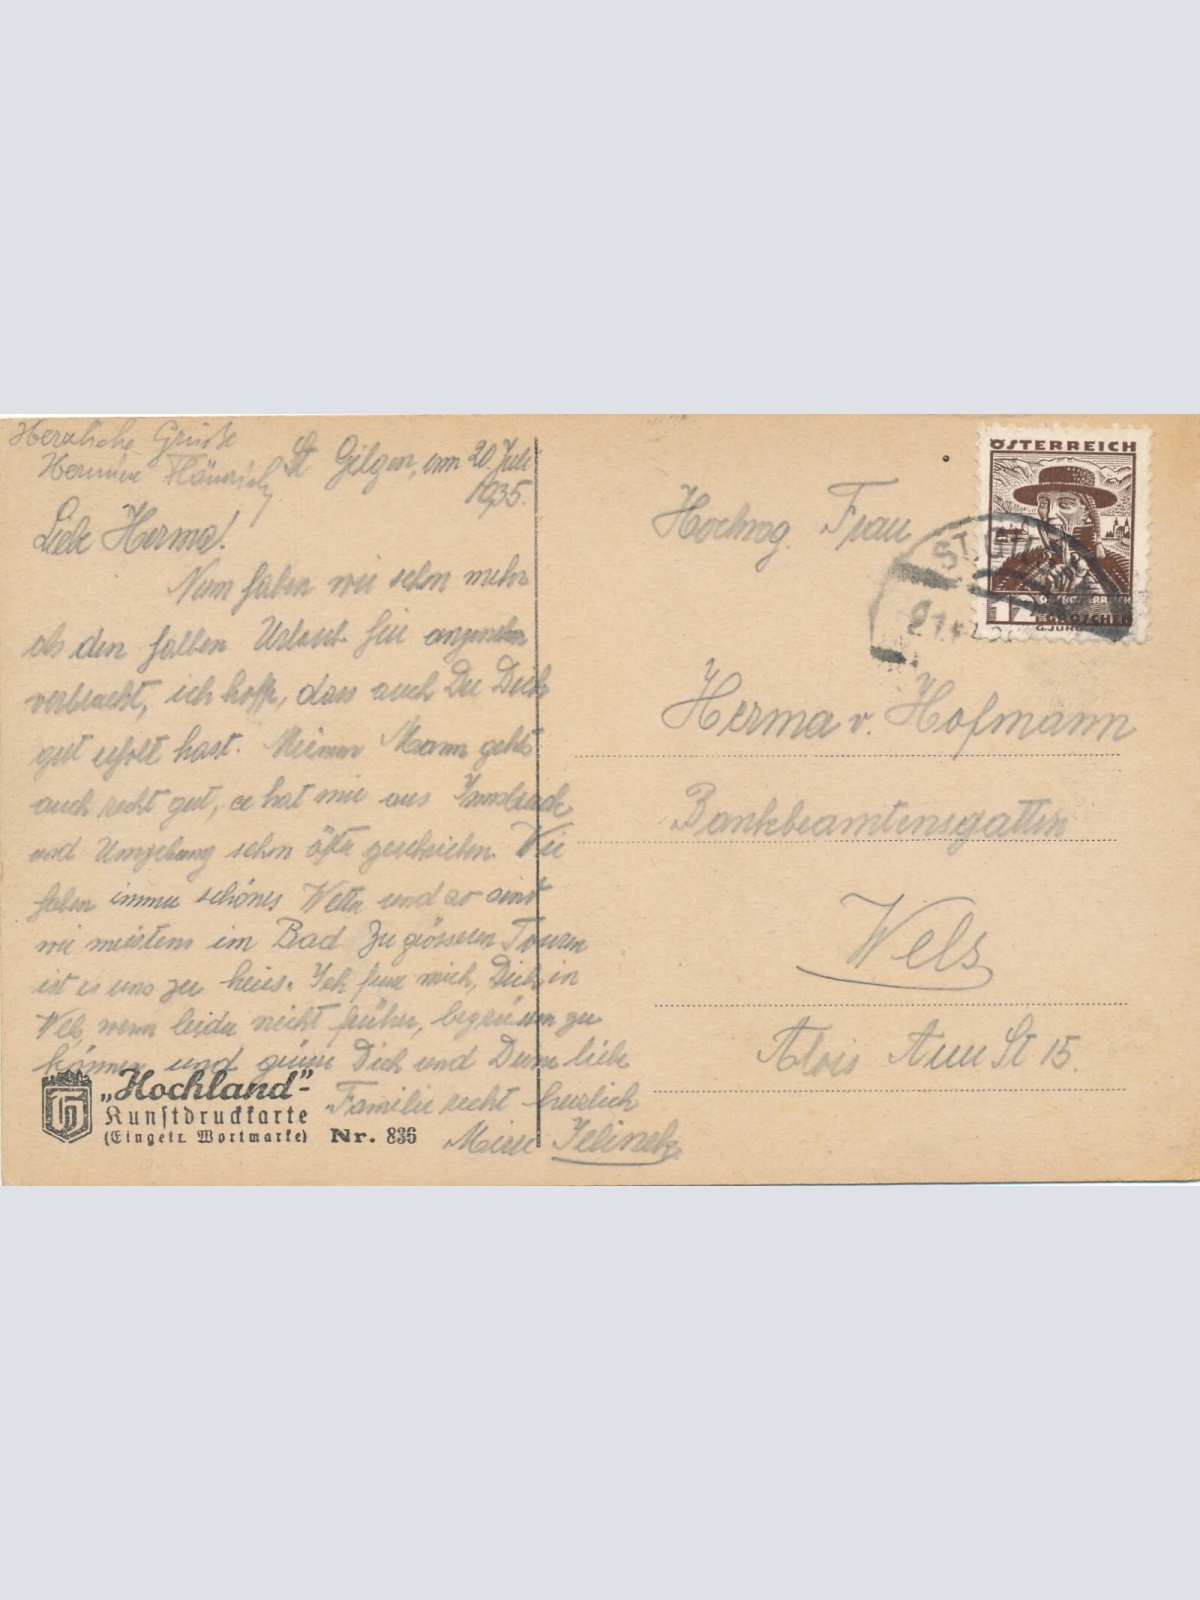 Herzliche Grüße
Hermine
St. Gilgen, am 20 Juli
1935.
Liebe Herma!
Nun haben wir schon mehr
als den halben Urlaub hier angenehm
verbracht, ich hoffe, dass auch Du Dich
gut erholt hast. Meinem Mann gehts
auch recht gut, er hat mir aus Innsbruck
und Umgebung schon öfter geschrieben. Wir
haben immer schönes Wetter und so sind
wir meistens im Bad. Zu grösseren Touren
ist es uns zu heiss. Ich freue mich, Dich in
Wels, wenn leider nicht früher, begrüssen zu
können und grüsse Dich und Deine liebe
Familie recht herzlich
Jelinek
„Hochland"-
Kunstdruckkarte
(Eingetr. Wortmarke) Nr. 836
ÖSTERREICH
OBERÖSTERREICH
12 GROSCHEN
ST. GILGEN
Hochwog. Frau
Herma v. Hofmann
Bankbeamtensgattin
Wels
Alois Auer St 15.